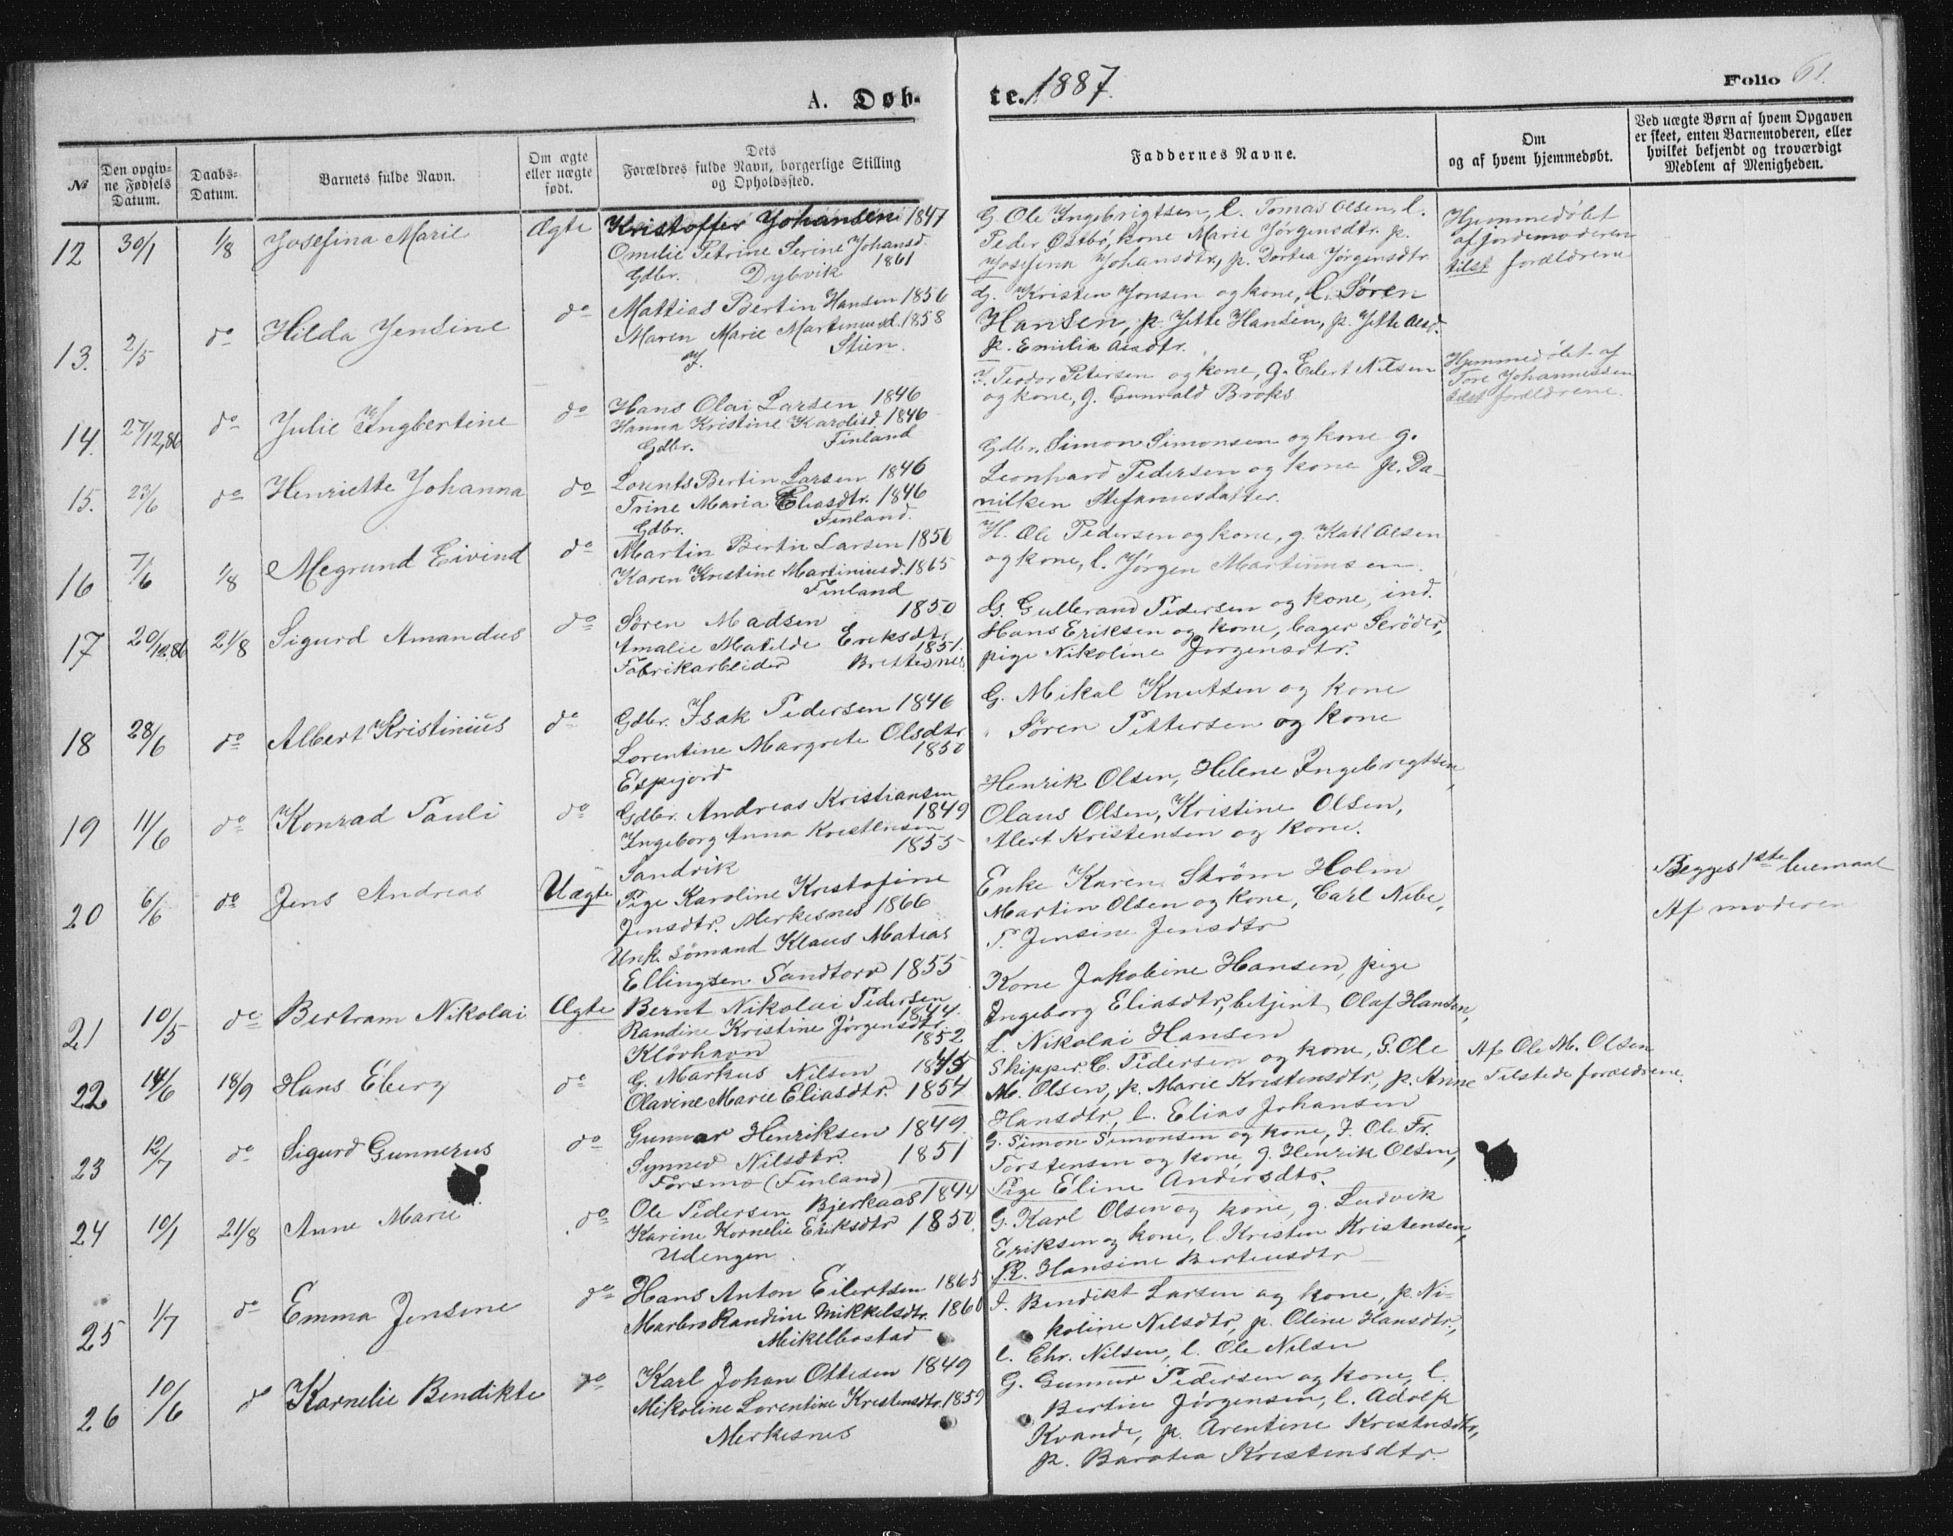 A. Døb-
№
Den opgiv-
ne Fødsels
Datum.
Daabs-
Datum.
Barnets fulde Navn.
Om ægte
eller uægte
født.
Dets
Forældres fulde Navn, borgerlige Stilling
og Opholdssted.
12 30/1 1/8 Josefina Marie Ægte Kristoffer Johansen 1847
Omilie Petrine Serine Johansd.
Gdbr. Dybvik 1861
13. 2/5 do Hilda Jensine do Mattias Bertin Hansen 1856
Maren Marie Martinusd. 1858
Stien.
14. 27/12,86 do Julie Ingbertine do Hans Olai Larsen 1846
Hanna Kristine Karolisd. 1846
Gdbr. Finland
15. 23/6 do Henriette Johanna do Lorents Bertin Larsen 1846
Trine Maria Eliasdtr. 1846
Gdbr. Finland.
16 7/6 1/8 Megrund Eivind do Martin Bertin Larsen 1856
Karen Kristine Martiniusd. 1865
Finland
17 20/12.86 21/8 Sigurd Amandus do Søren Madsen 1850
Amalie Matilde Eriksdtr.
1851.
Fabrikarbeider Brettesnes
18 28/6 do Albert Kristinius do Gdbr. Isak Pedersen 1846
Lorentine Margrete Olsdtr
1850
Espejord
19 11/6 do Konrad Pauli do Gdbr. Andreas Kristiansen
1849
Ingeborg Anna Kristensen
1855
Sandvik
20 6/6 do Jens Andreas Uægte Pige Karoline Kristofine
Jensdtr. Merkesnes 1866
Unk. sømand Klaus Matias
Ellingsen Sandtorv 1855
21 10/5 do Bertram Nikolai Ægte Bernt Nikolai Pedersen
1844.
Randine Kristine Jørgensdtr.
1852
Kløvhavn
22 14/6 18/9 Hans Eberg do G. Markus Nilsen 1845
Olavine Marie Eliasdtr. 1854
23 12/7 do Sigurd Gunnerus do Gunnar Henriksen 1849.
Synnev Nilsdtr. 1851
Forsmo (Finland)
24 10/1 21/8 Anne Marie do Ole Pedersen Bjerkaas 1844
Karine Kornelie Eriksdtr 1850.
Udengen
25 1/7 do Emma Jensine do Hans Anton Eilertsen 1865
Randine Mikkelsdtr. 1860
Mikelbostad
26 10/6 do Karnelie Bendikte do Karl Johan Ottesen 1849
Mikoline Lorentine Kristensdtr. 1859
Merkesnes
te. 1887. Folio 61.
Faddernes Navne.
Om
og af hvem hjemmedøbt.
Ved uægte Børn af hvem Opgaven
er skeet, enten Barnemoderen, eller
hvilket bekjendt og troværdigt
Medlem af Menigheden.
G. Ole Ingebrigtsen, l. Tomas Olsen, l.
Peder Østbø, kone Marie Jørgensdtr. p.
Josefina Johansdtr, p. Dortea Jørgensdtr
Hjemmedøbt
af jordemoderen
tilst. forældrene
G. Kristen Jonsen og kone, l. Søren
Hansen, p. Jette Hansen, p. Jette Olsd.
p. Emilia Olsdtr.
F. Teodor Petersen og kone, g. Eilert Nilsen
og kone, g. Gunvald Broks
Hjemmedøbt af
Tore Johannessen
tilst. forældrene.
Gdbr. Simon Simonsen og kone g.
Leonhard Pedersen og kone p. Da-
nilken Stefanusdatter.
H. Ole Pedersen og kone, g. Karl Olsen
og kone, l. Jørgen Martinusen.
G. Gullerand Pedersen og kone, ind.
Hans Eriksen og kone, bager Scrøder,
pige Nikoline Jørgensdtr.
G. Mikal Knutsen og kone
Søren Pettersen og kone
Henrik Olsen, Helene Ingebregtsen,
Olaus Olsen, Kristine Olsen,
Alert Kristensen og kone.
Enke Karen Strøm Holm
Martin Olsen og kone, Carl Nibe,
P. Jensine Jensdtr
Begges 1ste leiemaal
Af moderen
Kone Jakobine Hansen, pige
Ingeborg Eliasdtr, betjent Olaf Hansen,
L. Nikolai Hansen
Skipper C. Pedersen og kone, G. Ole
M. Olsen, p. Marie Kristensdtr, p. Anne
Hansdtr, l. Elias Johansen
Af Ole M. Olsen
Tilstede forældrene.
G. Simon Simonsen og kone, F. Ole Fr.
Torstensen og kone, g. Henrik Olsen,
Pige Eline Andersdtr.
G. Karl Olsen og kone, g. Ludvik
Eriksen og kone, l. Kristen Kristensen,
P. Hansine Bertensdtr
I. Bendikt Larsen og kone, p. Ni-
koline Nilsdtr, p. Oline Hansdtr.,
l. Chr. Nilsen, l. Ole Nilsen
G. Gunnar Pedersen og kone, l.
Bertin Jørgensen, l. Adolf
Kvande, p. Arentine Kristensdtr,
p. Baratea Kristensdtr.